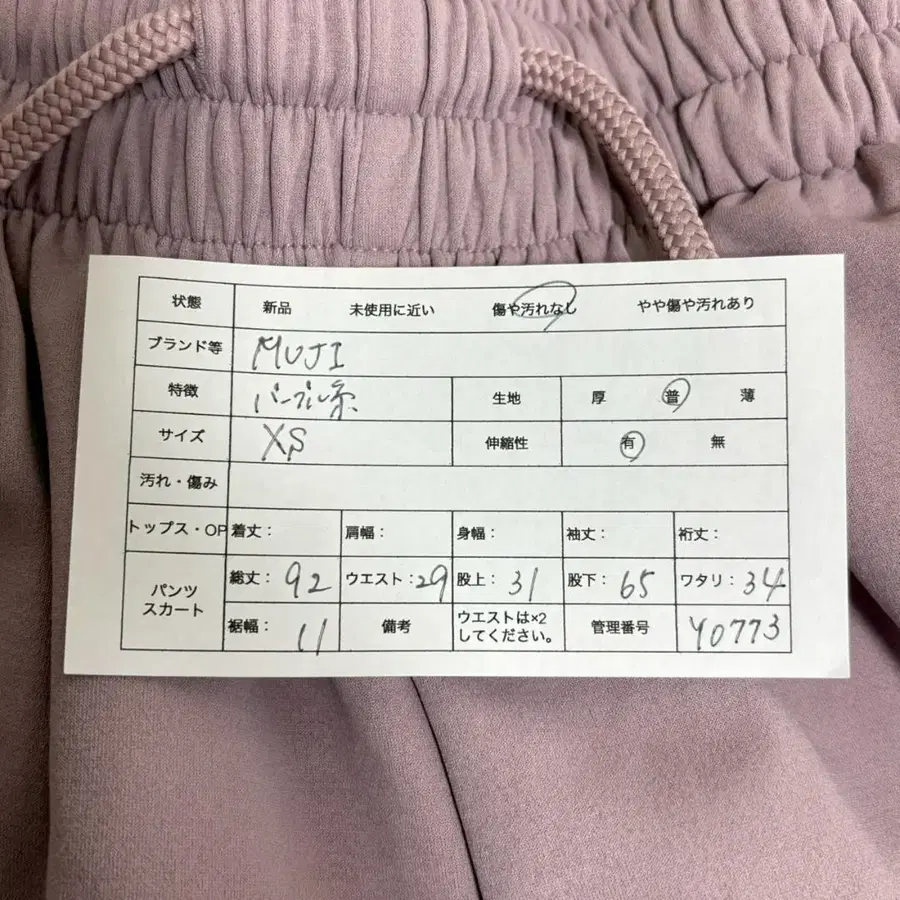 状態 新品 未使用に近い 傷や汚れなし やや傷や汚れあり
ブランド等 MUJI
特徴 パープル系 生地 厚 普 薄
サイズ XS 伸縮性 有 無
汚れ・傷み
トップス・OP 着丈: 肩幅: 身幅: 袖丈: 裄丈:
パンツ
スカート
総丈: 92 ウエスト: 29 股上: 31 股下: 65 ワタリ: 34
裾幅: 11 備考 ウエストは×2
してください。 管理番号 Y0773